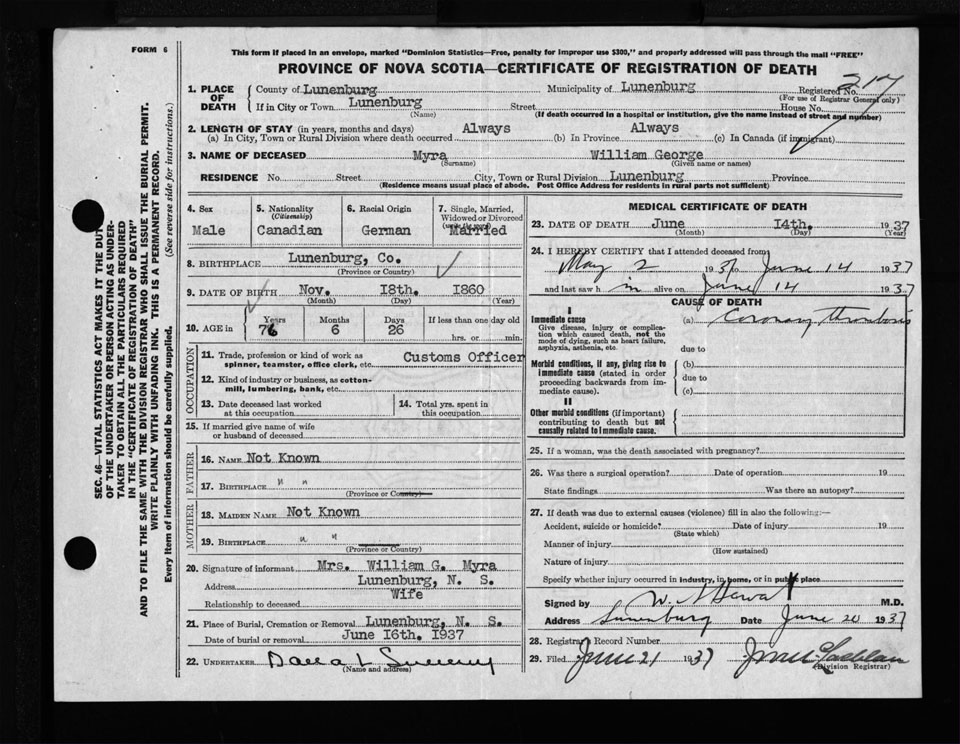 FORM 6
This form if placed in an envelope, marked "Dominion Statistics—Free, penalty for improper use $300," and properly addressed will pass through the mail "FREE"
PROVINCE OF NOVA SCOTIA—CERTIFICATE OF REGISTRATION OF DEATH
SEC. 46—VITAL STATISTICS ACT MAKES IT THE DUTY
OF THE UNDERTAKER OR PERSON ACTING AS UNDER-
TAKER TO OBTAIN ALL THE PARTICULARS REQUIRED
IN THE "CERTIFICATE OF REGISTRATION OF DEATH"
AND TO FILE THE SAME WITH THE DIVISION REGISTRAR WHO SHALL ISSUE THE BURIAL PERMIT.
WRITE PLAINLY WITH UNFADING INK. THIS IS A PERMANENT RECORD.
Every item of information should be carefully supplied. (See reverse side for instructions.)
1. PLACE OF DEATH County of Lunenburg Municipality of Lunenburg Registered No. 217
(For use of Registrar General only)
If in City or Town Lunenburg Street House No.
(Name) (If death occurred in a hospital or institution, give the name instead of street and number)
2. LENGTH OF STAY (in years, months and days) Always Always
(a) In City, Town or Rural Division where death occurred (b) In Province (c) In Canada (if immigrant)
3. NAME OF DECEASED Myra William George
(Surname) (Given name or names)
RESIDENCE No. Street City, Town or Rural Division Lunenburg Province
(Residence means usual place of abode. Post Office Address for residents in rural parts not sufficient)
4. Sex 5. Nationality (Citizenship) 6. Racial Origin 7. Single, Married, Widowed or Divorced
Male Canadian German Married
8. BIRTHPLACE Lunenburg, Co.
(Province or Country)
9. DATE OF BIRTH Nov. 18th. 1860
(Month) (Day) (Year)
10. AGE in Years Months Days If less than one day old
76 6 26 hrs. or min.
OCCUPATION
11. Trade, profession or kind of work as spinner, teamster, office clerk, etc. Customs Officer
12. Kind of industry or business, as cotton-mill, lumbering, bank, etc.
13. Date deceased last worked at this occupation 14. Total yrs. spent in this occupation
15. If married give name of wife or husband of deceased
FATHER
16. NAME Not Known
17. BIRTHPLACE " "
(Province or Country)
MOTHER
18. MAIDEN NAME Not Known
19. BIRTHPLACE " "
(Province or Country)
20. Signature of informant Mrs. William G. Myra
Address Lunenburg, N. S.
Relationship to deceased Wife
21. Place of Burial, Cremation or Removal Lunenburg, N. S.
Date of burial or removal June 16th. 1937
22. UNDERTAKER
(Name and address)
MEDICAL CERTIFICATE OF DEATH
23. DATE OF DEATH June 14th. 1937
(Month) (Day) (Year)
24. I HEREBY CERTIFY that I attended deceased from
May 2 1937 to June 14 1937
and last saw him alive on June 14 1937
CAUSE OF DEATH
I
Immediate cause (a) Coronary Thrombosis
Give disease, injury or complication which caused death, not the mode of dying, such as heart failure, asphyxia, asthenia, etc.
due to
Morbid conditions, if any, giving rise to immediate cause (stated in order proceeding backwards from immediate cause).
(b)
due to
(c)
II
Other morbid conditions (if important) contributing to death but not causally related to immediate cause.
25. If a woman, was the death associated with pregnancy?
26. Was there a surgical operation? Date of operation 19
State findings Was there an autopsy?
27. If death was due to external causes (violence) fill in also the following:—
Accident, suicide or homicide? Date of injury 19
(State which)
Manner of injury
(How sustained)
Nature of injury
Specify whether injury occurred in industry, in home, or in public place
Signed by M.D.
Address Lunenburg Date June 20 1937
28. Registrar Record Number
29. Filed June 21 1937
(Division Registrar)